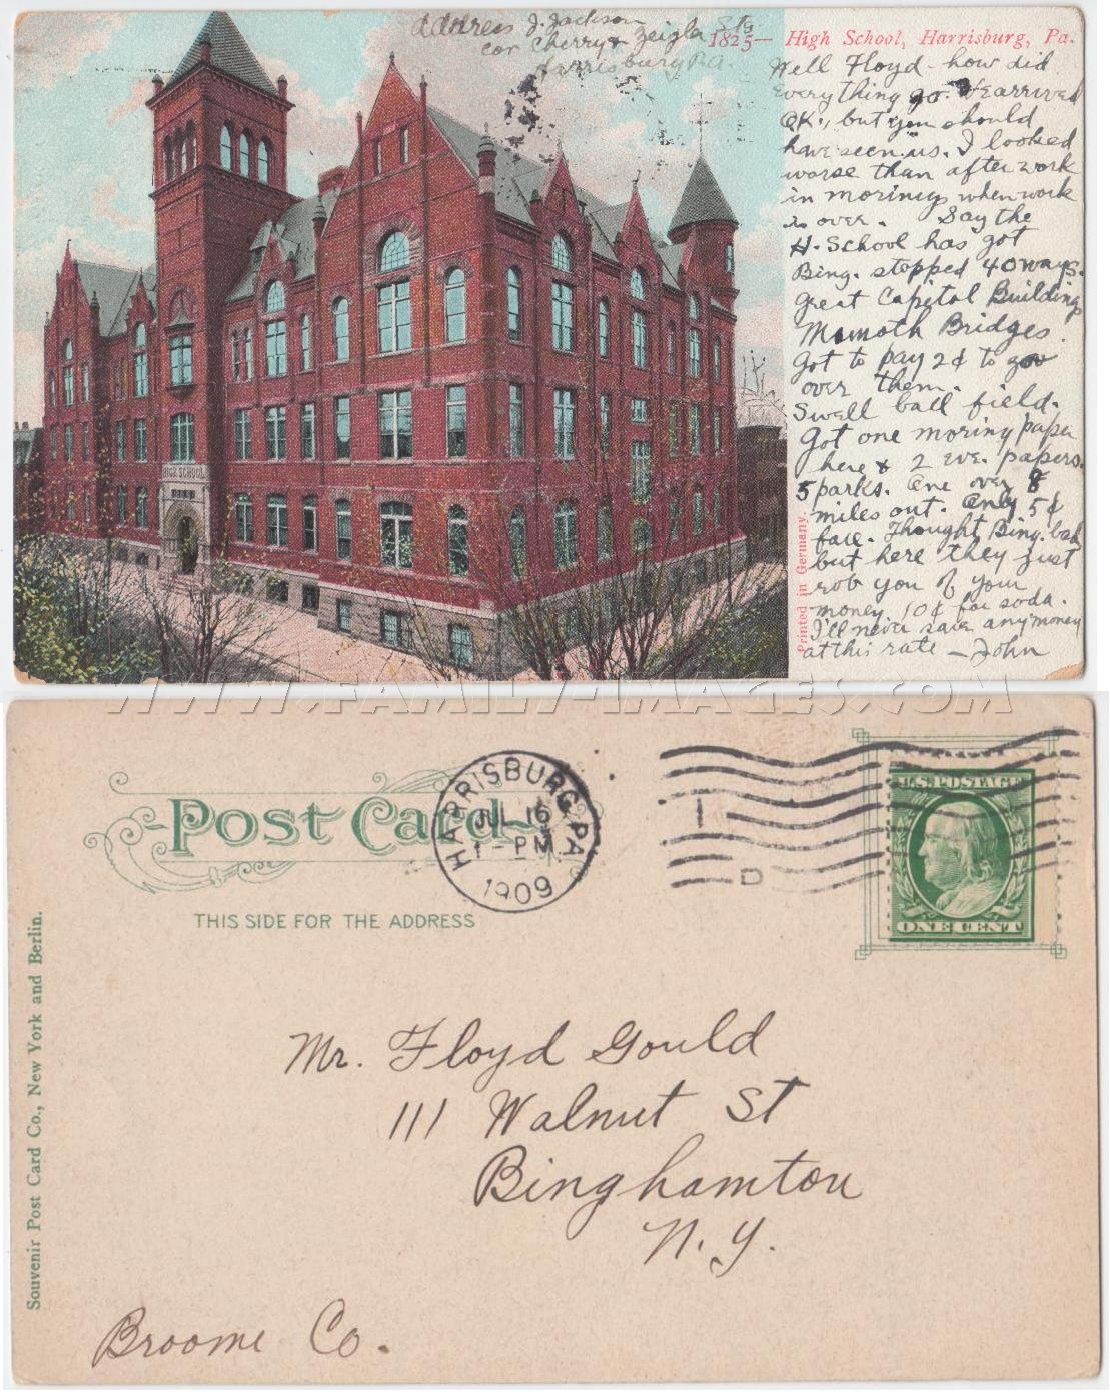 Address J. Jackson
cor Cherry & Zeigla Sts.
Harrisburg Pa.
1825— High School, Harrisburg, Pa.
Well Floyd - how did
everything go. We arrived
OK, but you should
have seen us. I looked
worse than after work
in morings when work
is over. Say the
H. School has got
Bing. stopped 40 ways.
Great Capitol Building
Mamoth Bridges.
Got to pay 2¢ to go
over them.
Swell ball field.
Got one moring paper
here & 2 eve. papers.
5 parks. One over 8
miles out. Only 5¢
fare. Thought Bing. bad
but here they just
rob you of your
money 10¢ for soda.
I'll never save any money
at this rate — John
Printed in Germany.
HIGH SCHOOL
WWW.FAMILY-IMAGES.COM
Post Card
THIS SIDE FOR THE ADDRESS
HARRISBURG, PA.
JUL 16
1 - PM
1909
I
D
U.S. POSTAGE
ONE CENT
Souvenir Post Card Co., New York and Berlin.
Mr. Floyd Gould
111 Walnut St
Binghamton
N. Y.
Broome Co.